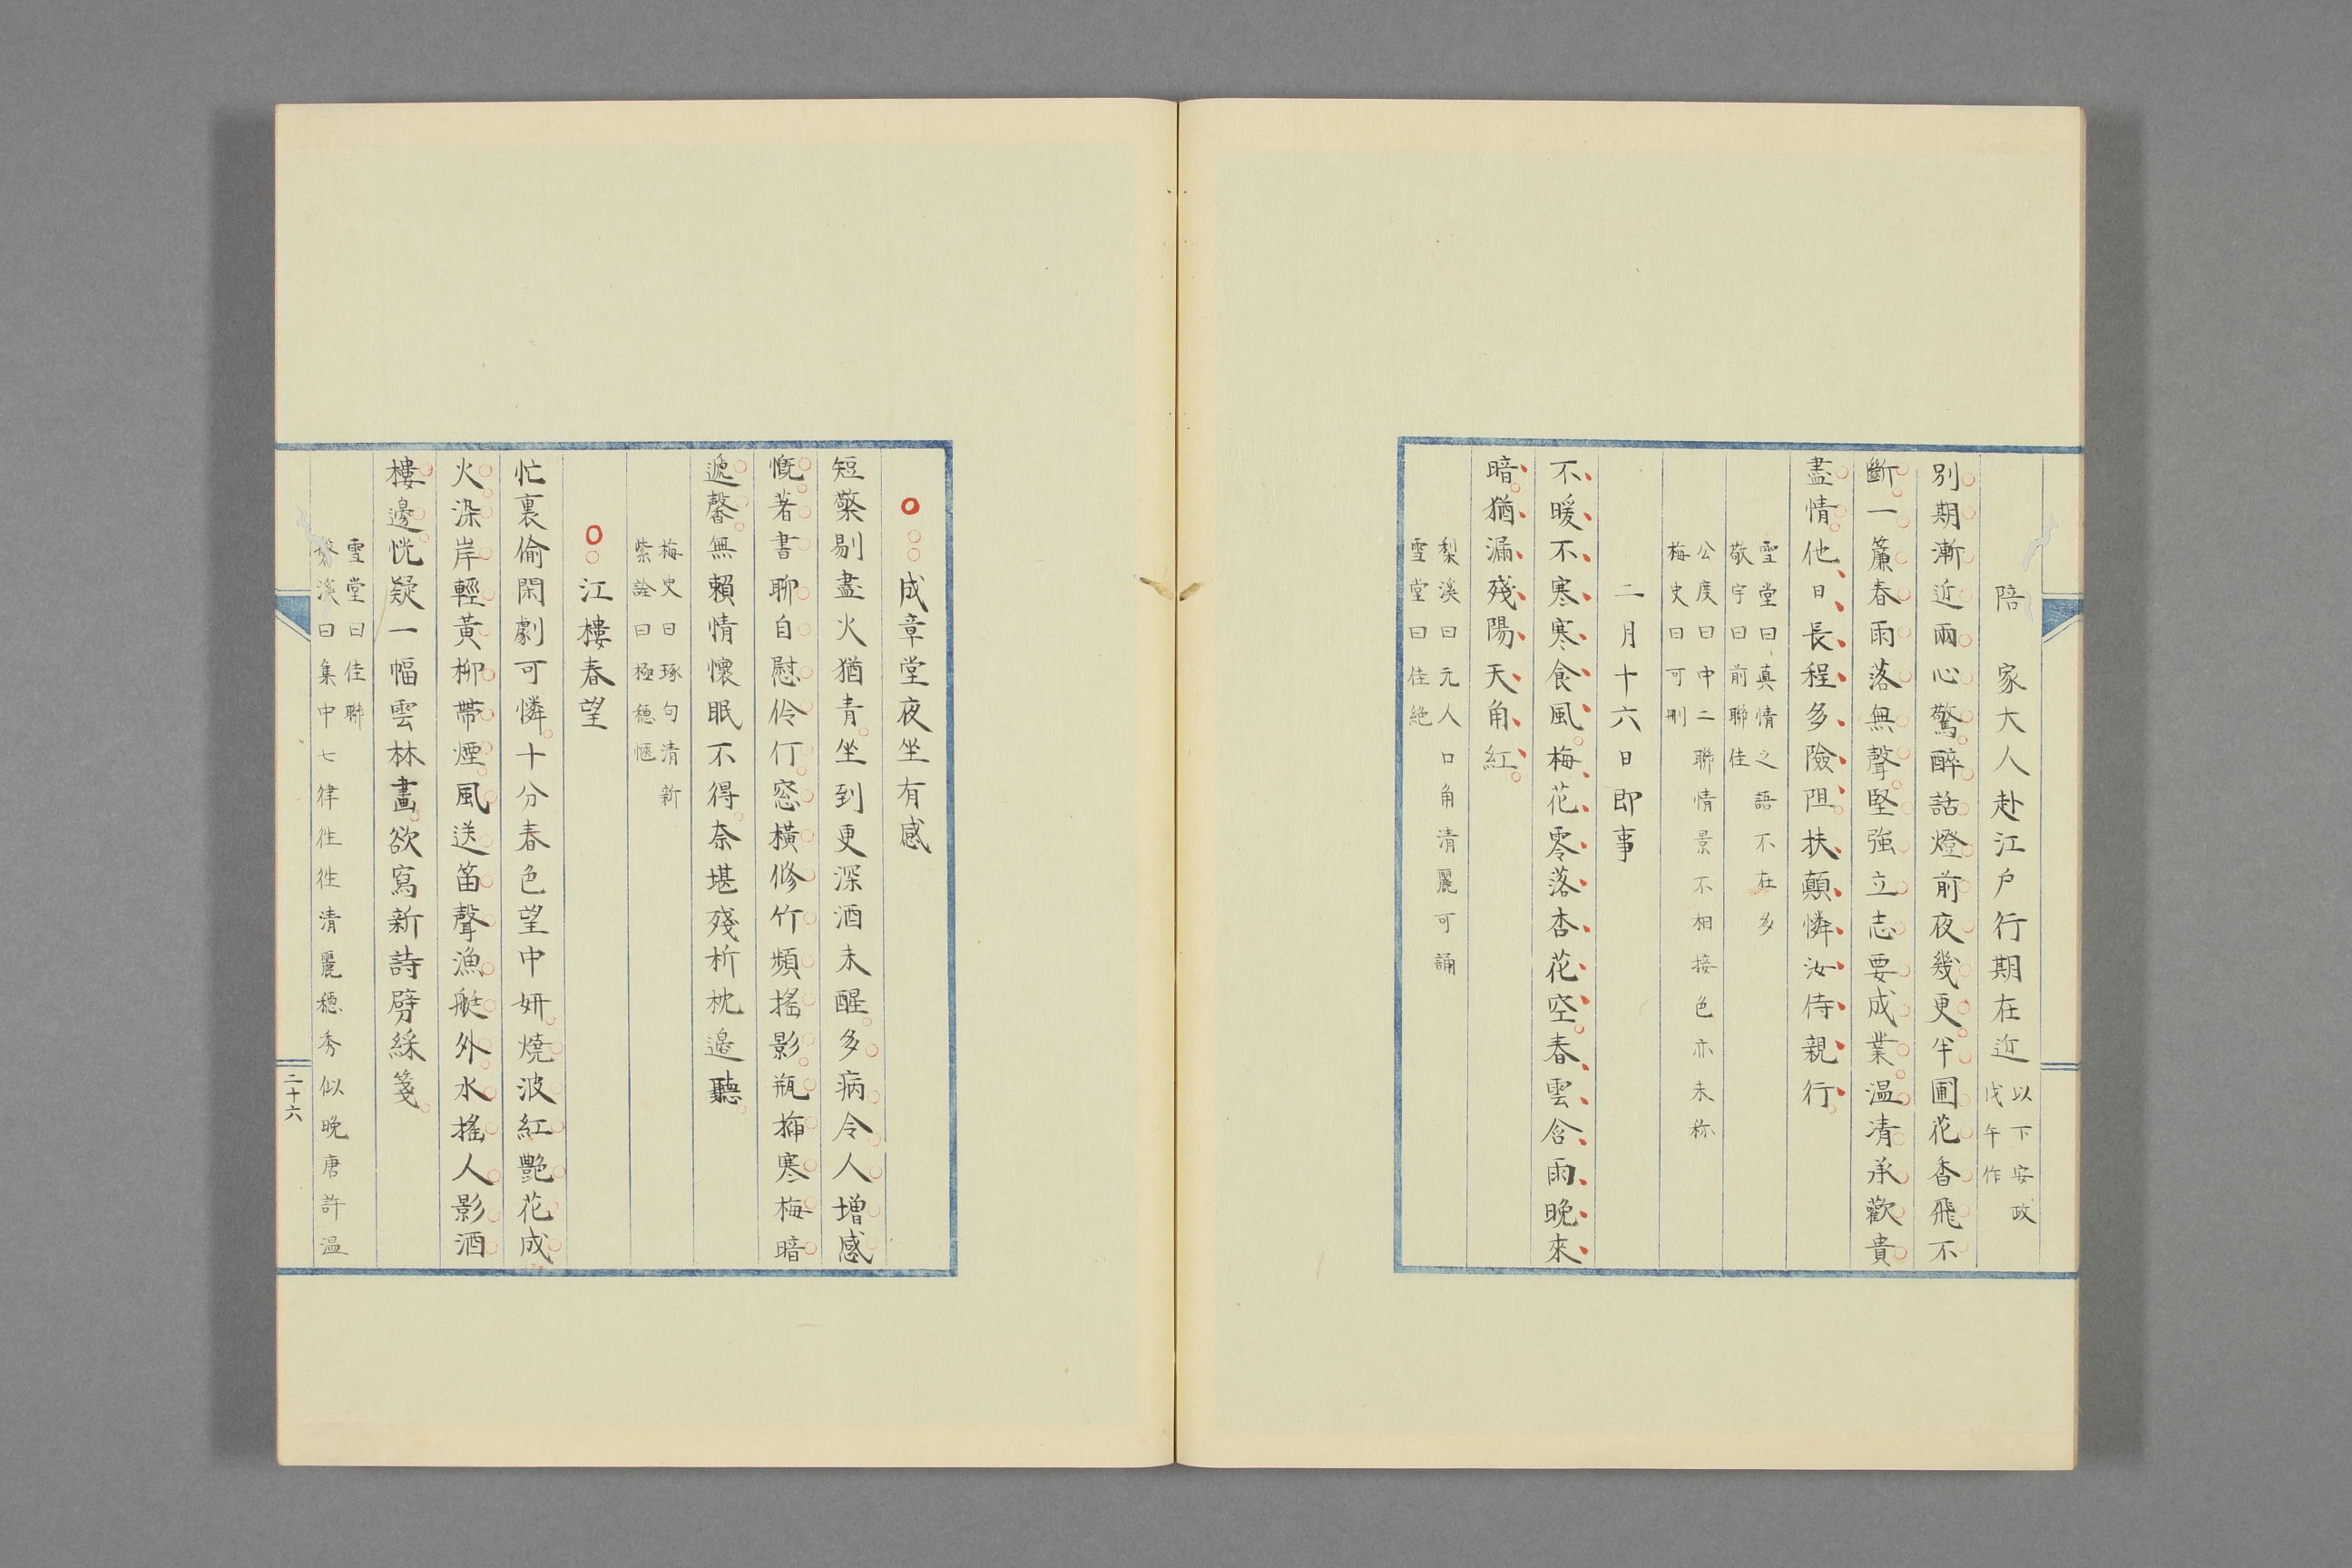 陪　家大人赴江戸行期在近以下安政
戊午作
別期漸近兩心驚醉話燈前夜幾更半圃花香飛不
斷一簾春雨落無聲堅強立志要成業温凊承歡貴
盡情他日長程多險阻扶顛憐汝侍親行
雪堂曰真情之語不在多
敬宇曰前聯佳
公度曰中二聯情景不相接色亦未称
梅史曰可刪
二月十六日即事
不暖不寒寒食風梅花零落杏花空春雲含雨晚來
暗猶漏殘陽天角紅
梨溪曰元人口角清麗可誦
雪堂曰佳絶
成章堂夜坐有感
短檠剔盡火猶青坐到更深酒未醒多病令人增感
慨著書聊自慰伶仃窓橫修竹頻搖影瓶揷寒梅暗
遞馨無賴情懷眠不得奈堪殘析枕邊聽
梅史曰琢句清新
紫詮曰極穩愜
江樓春望
忙裏偷閑劇可憐十分春色望中妍燒波紅艷花成
火染岸輕黃柳帶煙風送笛聲漁艇外水搖人影酒
樓邊恍疑一幅雲林畫欲寫新詩劈綵箋
雪堂曰佳聯
溪曰集中七律徃徃清麗穩秀似晚唐許温
二十六